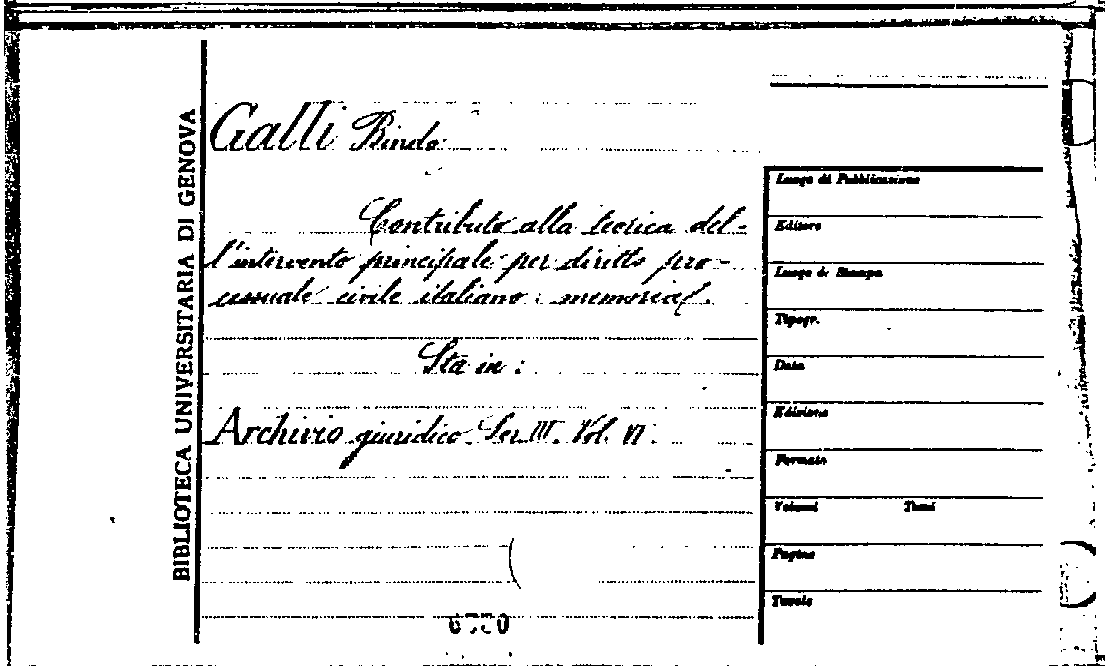 BIBLIOTECA UNIVERSITARIA DI GENOVA
Galli Bindo
Contributo alla teorica del-
l'intervento principale per diritto pro-
cessuale civile italiano: memoria.
Sta in:
Archivio giuridico. Ser. III. Vol. VI.
Luogo di Pubblicazione
Editore
Luogo di Stampa
Tipogr.
Data
Edizione
Formato
Volumi Tomi
Pagine
Tavole